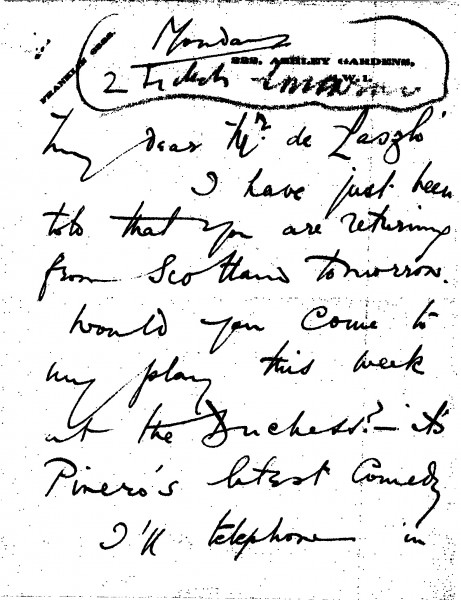 Monday
FRANKLIN 6200.
222, ASHLEY GARDENS,
S.W.1.
2 tickets tomorrow
My dear Mr. de Laszlo
I have just been
told that you are returning
from Scotland tomorrow.
Would you come to
my play this week
at the Duchess? – it's
Pinero's latest Comedy
I'll telephone in